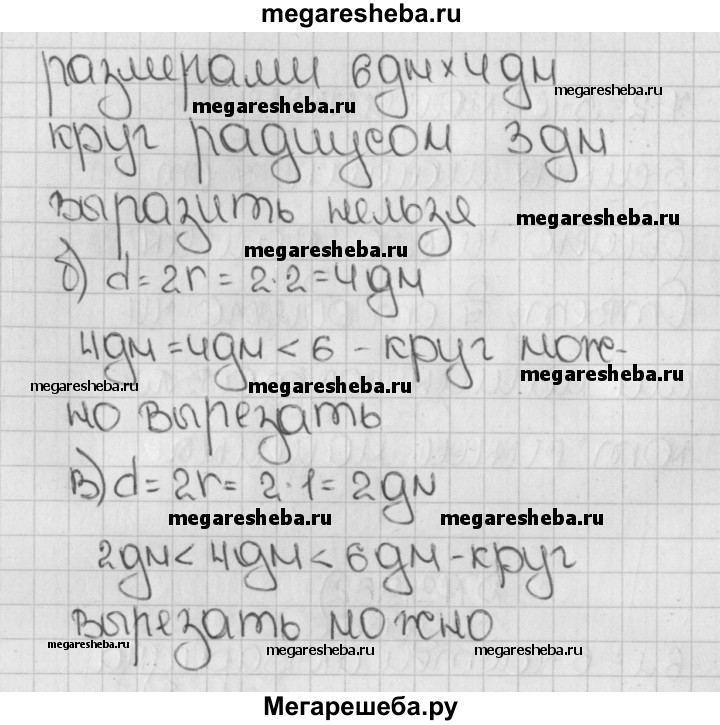 megaresheba.ru
размерами 6дм×4дм
megaresheba.ru
megaresheba.ru
круг радиусом 3дм
выразить нельзя
megaresheba.ru
megaresheba.ru
б) d=2r=2·2=4дм
4дм=4дм<6 - круг мож-
megaresheba.ru
megaresheba.ru
megaresheba.ru
но вырезать
в) d=2r=2·1=2дм
megaresheba.ru
megaresheba.ru
2дм<4дм<6дм-круг
вырезать можно
megaresheba.ru
megaresheba.ru
megaresheba.ru
Мегарешеба.ру